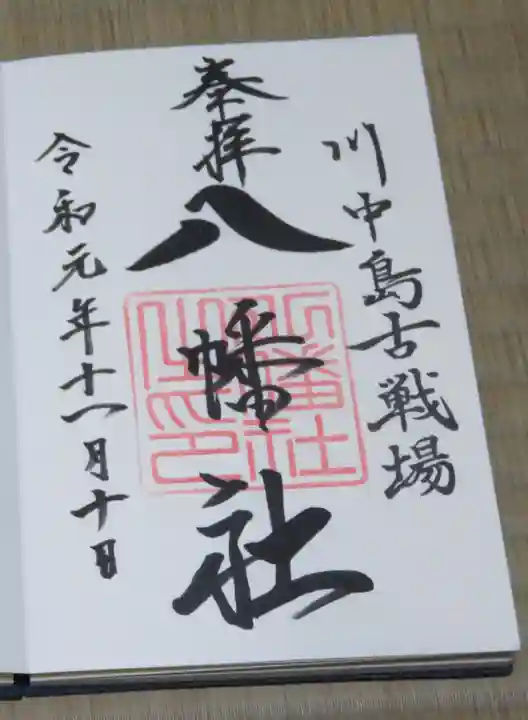 川中島古戦場
奉拝
八幡社
八幡社
之印
令和元年十一月十日